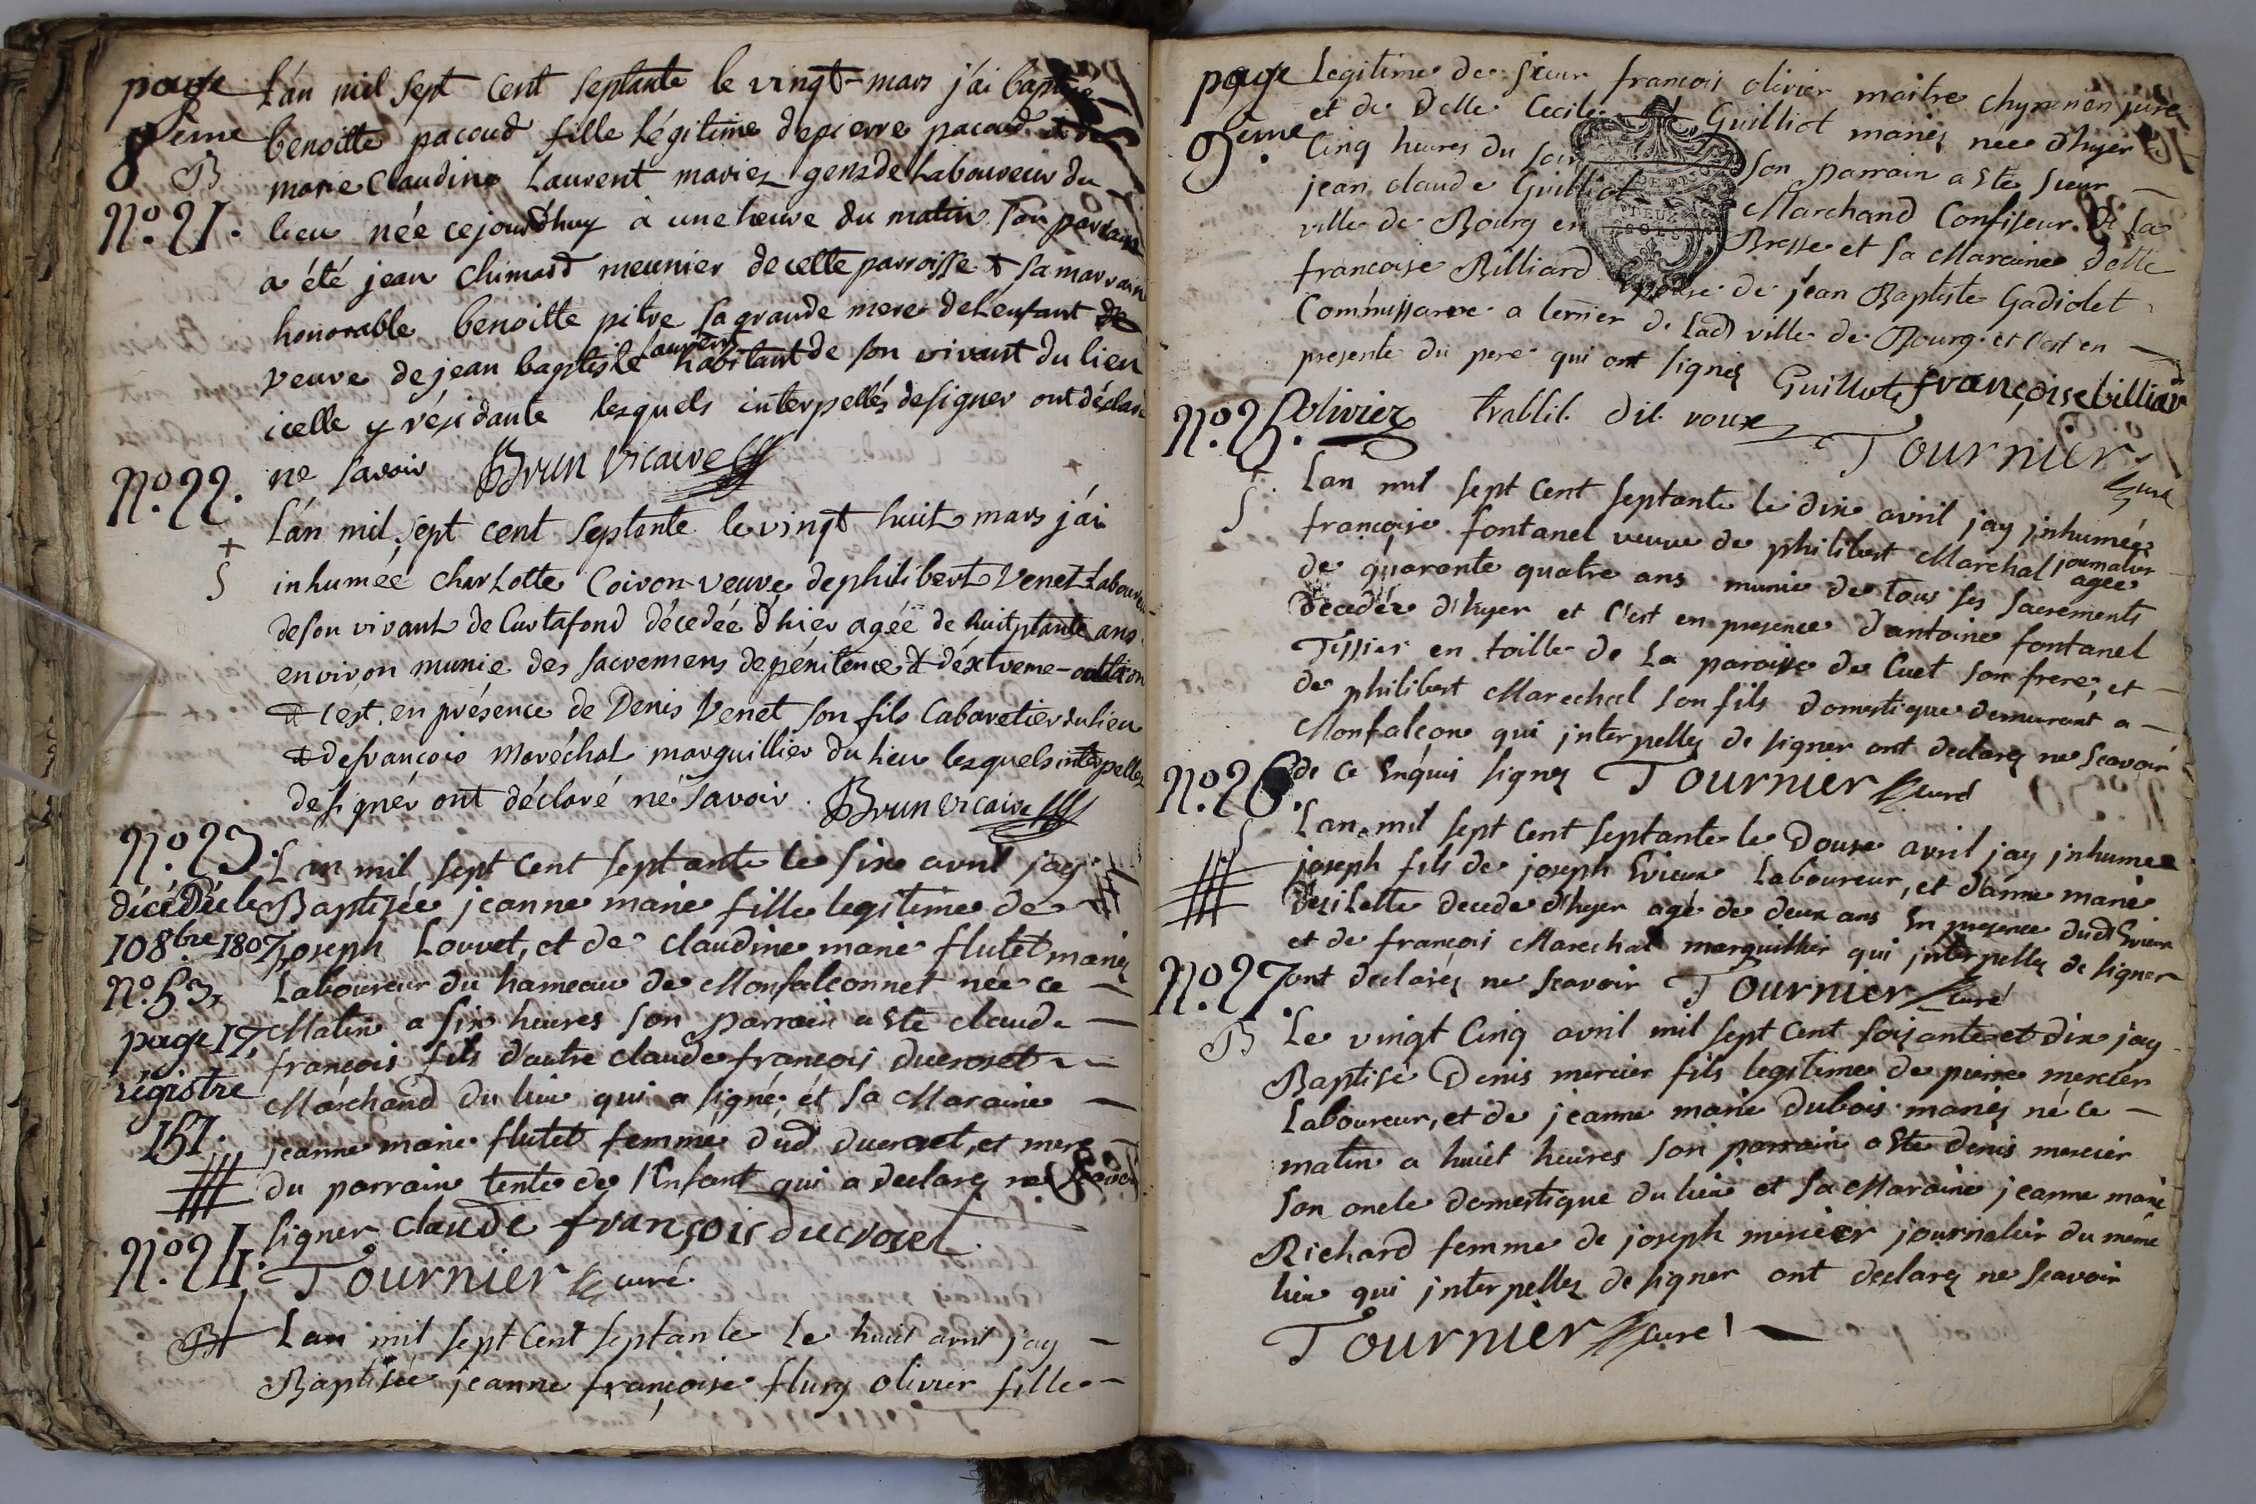 page
8eme
B
N.º 21.
L'an mil sept cent septante le vingt-mars j'ai baptisé
benoitte pacoud fille légitime de pierre pacoud et de
marie Claudine Laurent mariez gens de Laboureur du
lieu née cejourd'huy à une heure du matin son parrain
a été jean Chimard meunier de cette parroisse & sa marraine
honorable benoitte pitre sa grande mere de L'enfant
veuve de jean baptiste Laurent habitant de son vivant du lieu
icelle y résidante lesquels interpellés de signer ont déclaré
ne savoir Brun vicaire
N.º 22.
+
S
L'an mil sept cent septante le vingt huit mars j'ai
inhumée charLotte Coiron veuve de philibert Venet Laboureur
de son vivant de Curtafond décedée d'hier agée de huitptante ans
environ munie des sacremens de pénitence & d'extreme-onction
& c'est en présence de Denis Venet son fils Cabaretier du lieu
& de francois Maréchal marguillier du lieu lesquels interpellez
de signér ont déclaré né savoir. Brun vicaire
N.º 23.
décédée le
10 8bre 1807,
N.º 53,
page 17,
régistre
151.
Lan mil sept cent septante le six avril jay
Baptisée jeanne marie fille legitime de
joseph Louvet, et de claudine marie flutet mariez
Laboureur du hameau de Monfalconnet née ce
Matin a six heures son parrain a Ete claude
françois fils d'autre claude françois ducroset
Marchand du lieu qui a signé, et sa Maraine
jeanne marie flutet femme dud ducroset, et mere
du parrain tente de l'Enfant qui a declarez ne scavoir
signer claude françois ducroset
Tournier curé
N.º 24.
B
Lan mil sept cent septante le huit avril jay
Baptisée jeanne françoise flury olivier fille
page
9eme
Legitime de sieur francois olivier maitre chyrurgien juré
et de Delle Cecile Guilliot mariez née d'hyer
Cinq heures du soir son parrain a Ete sieur
jean claude Guilliot Marchand Confiseur de la
ville de Bourg en Bresse et sa Maraine Delle
francoise Billiard Epouse de jean Baptiste Gadiolet
Commissaire a terrier de Lad ville de Bourg et c'est en
presente du pere qui ont signez Guilliot françoise billiard
olivier trablit dit roux
Tournier curé
N.º 25.
+
S
Lan mil sept cent septante le dix avril jay jnhumée
françoise fontanel veuve de philibert Marechal journalier agee
de quarante quatre ans munie de tous ses sacrements
Decedée d'hyer et c'est en presence d'antoine fontanel
Tissier en toille de La paroisse de Cuet son frere, et
de philibert Marechal son fils domestique demeurant a
Monfalcon qui jnterpellez de signer ont declarez ne scavoir
de ce Enquis signez Tournier curé
N.º 26.
S
Lan mil sept cent septante le Douze avril jay jnhumee
joseph fils de joseph Vrieux Laboureur, et d'anne marie
Decedé d'hyer agé de deux ans En presence dud
et de françois Marechal marguillier qui jnterpellez de signer
ont declarez ne scavoir Tournier curé
N.º 27.
B
Le vingt Cinq avril mil sept cent soixante et dix jay
Baptisé Denis mercier fils legitime de pierre mercier
Laboureur, et de jeanne marie Dubois mariez né ce
matin a huit heures son parrain a Ete denis mercier
son oncle domestique du lieu et sa Maraine jeanne marie
Richard femme de joseph mercier journalier du même
lieu qui jnterpellez de signer ont declarez ne scavoir
Tournier curé